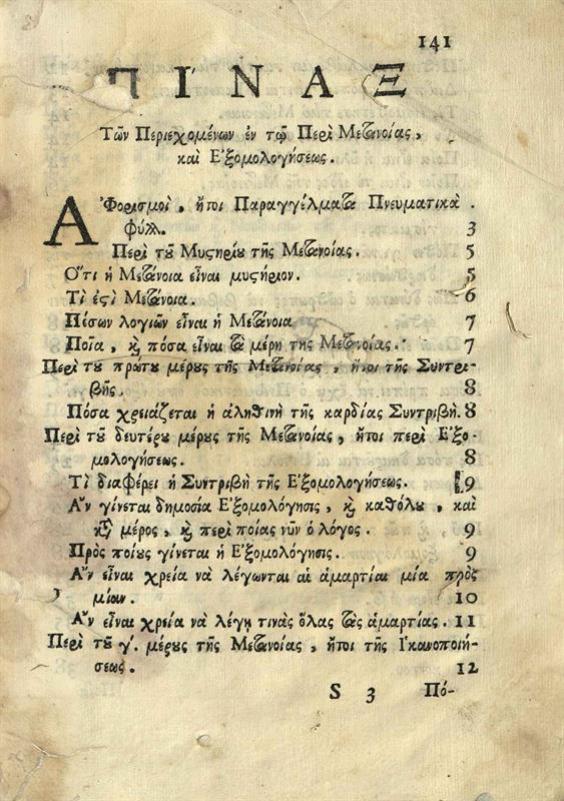 141
ΠΙ΄ΝΑΞ
Τῶν Περιεχομένων ἐν τῷ Περὶ Μετανοίας,
καὶ Ε᾿ξομολογήσεως.
Α᾿Φορισμοὶ, ἤτοι Παραγγέλματα Πνευματικὰ.
φύλλ. 3
Περὶ τοῦ Μυστηρίου τῆς Μετανοίας. 5
Ο῞τι ἡ Μετάνοια εἶναι μυστήριον. 5
Τὶ ἐστὶ Μετάνοια. 6
Πόσων λογιῶν εἶναι ἡ Μετάνοια 7
Ποῖα, καὶ πόσα εἶναι τὰ μέρη τῆς Μετανοίας. 7
Περὶ τοῦ πρώτου μέρους τῆς Μετανοίας, ἤτοι τῆς Συντρι-
βῆς. 8
Πόσα χρειάζεται ἡ ἀληθινὴ τῆς καρδίας Συντριβή. 8
Περὶ τοῦ δευτέρου μέρους τῆς Μετανοίας, ἤτοι περὶ Ε᾿ξο-
μολογήσεως. 8
Τὶ διαφέρει ἡ Συντριβὴ τῆς Ε᾿ξομολογήσεως. [9
Α᾿ν γίνεται δημοσία Ε᾿ξομολόγησις, καὶ καθόλου, καὶ
κατὰ μέρος, καὶ περὶ ποίας νῦν ὁ λόγος. 9
Πρὸς ποίους γίνεται ἡ Ε᾿ξομολόγησις. 9
Α᾿ν εἶναι χρεία νὰ λέγωνται αἱ ἁμαρτίαι μία πρὸς
μίαν. 10
Α᾿ν εἶναι χρεία νὰ λέγῃ τινὰς ὅλας τὰς ἁμαρτίας. 11
Περὶ τοῦ γ΄. μέρους τῆς Μετανοίας, ἤτοι τῆς Ι῾κανοποιή-
σεως. 12
S 3 Πό-